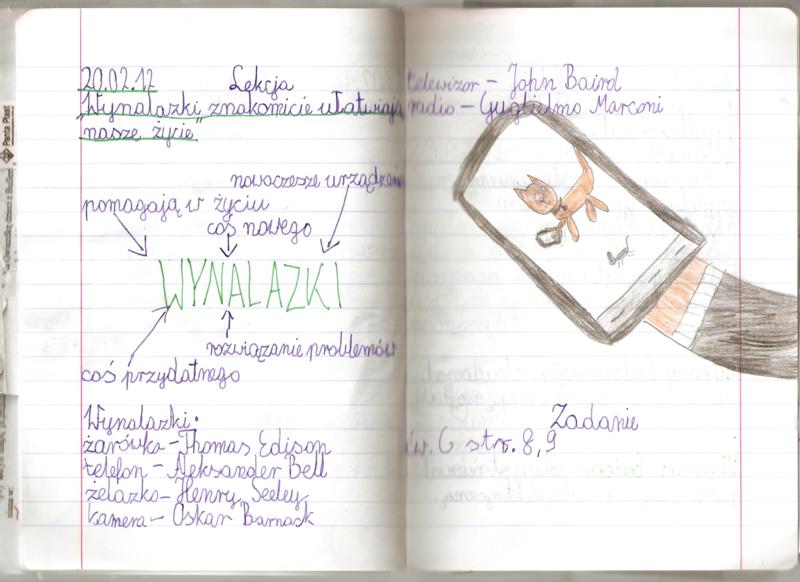 20.02.12 Lekcja
"Wynalazki znakomicie ułatwiają
nasze życie"
nowoczesze urządzenia
pomagają w życiu
coś nowego
WYNALAZKI
rozwiązanie problemów
coś przydatnego
Wynalazki:
żarówka - Thomas Edison
telefon - Aleksander Bell
żelazko - Henry Seeley
kamera - Oskar Barnack
telewizor - John Baird
radio - Guglielmo Marconi
Zadanie
ćw. 6 str. 8,9
Panta Plast